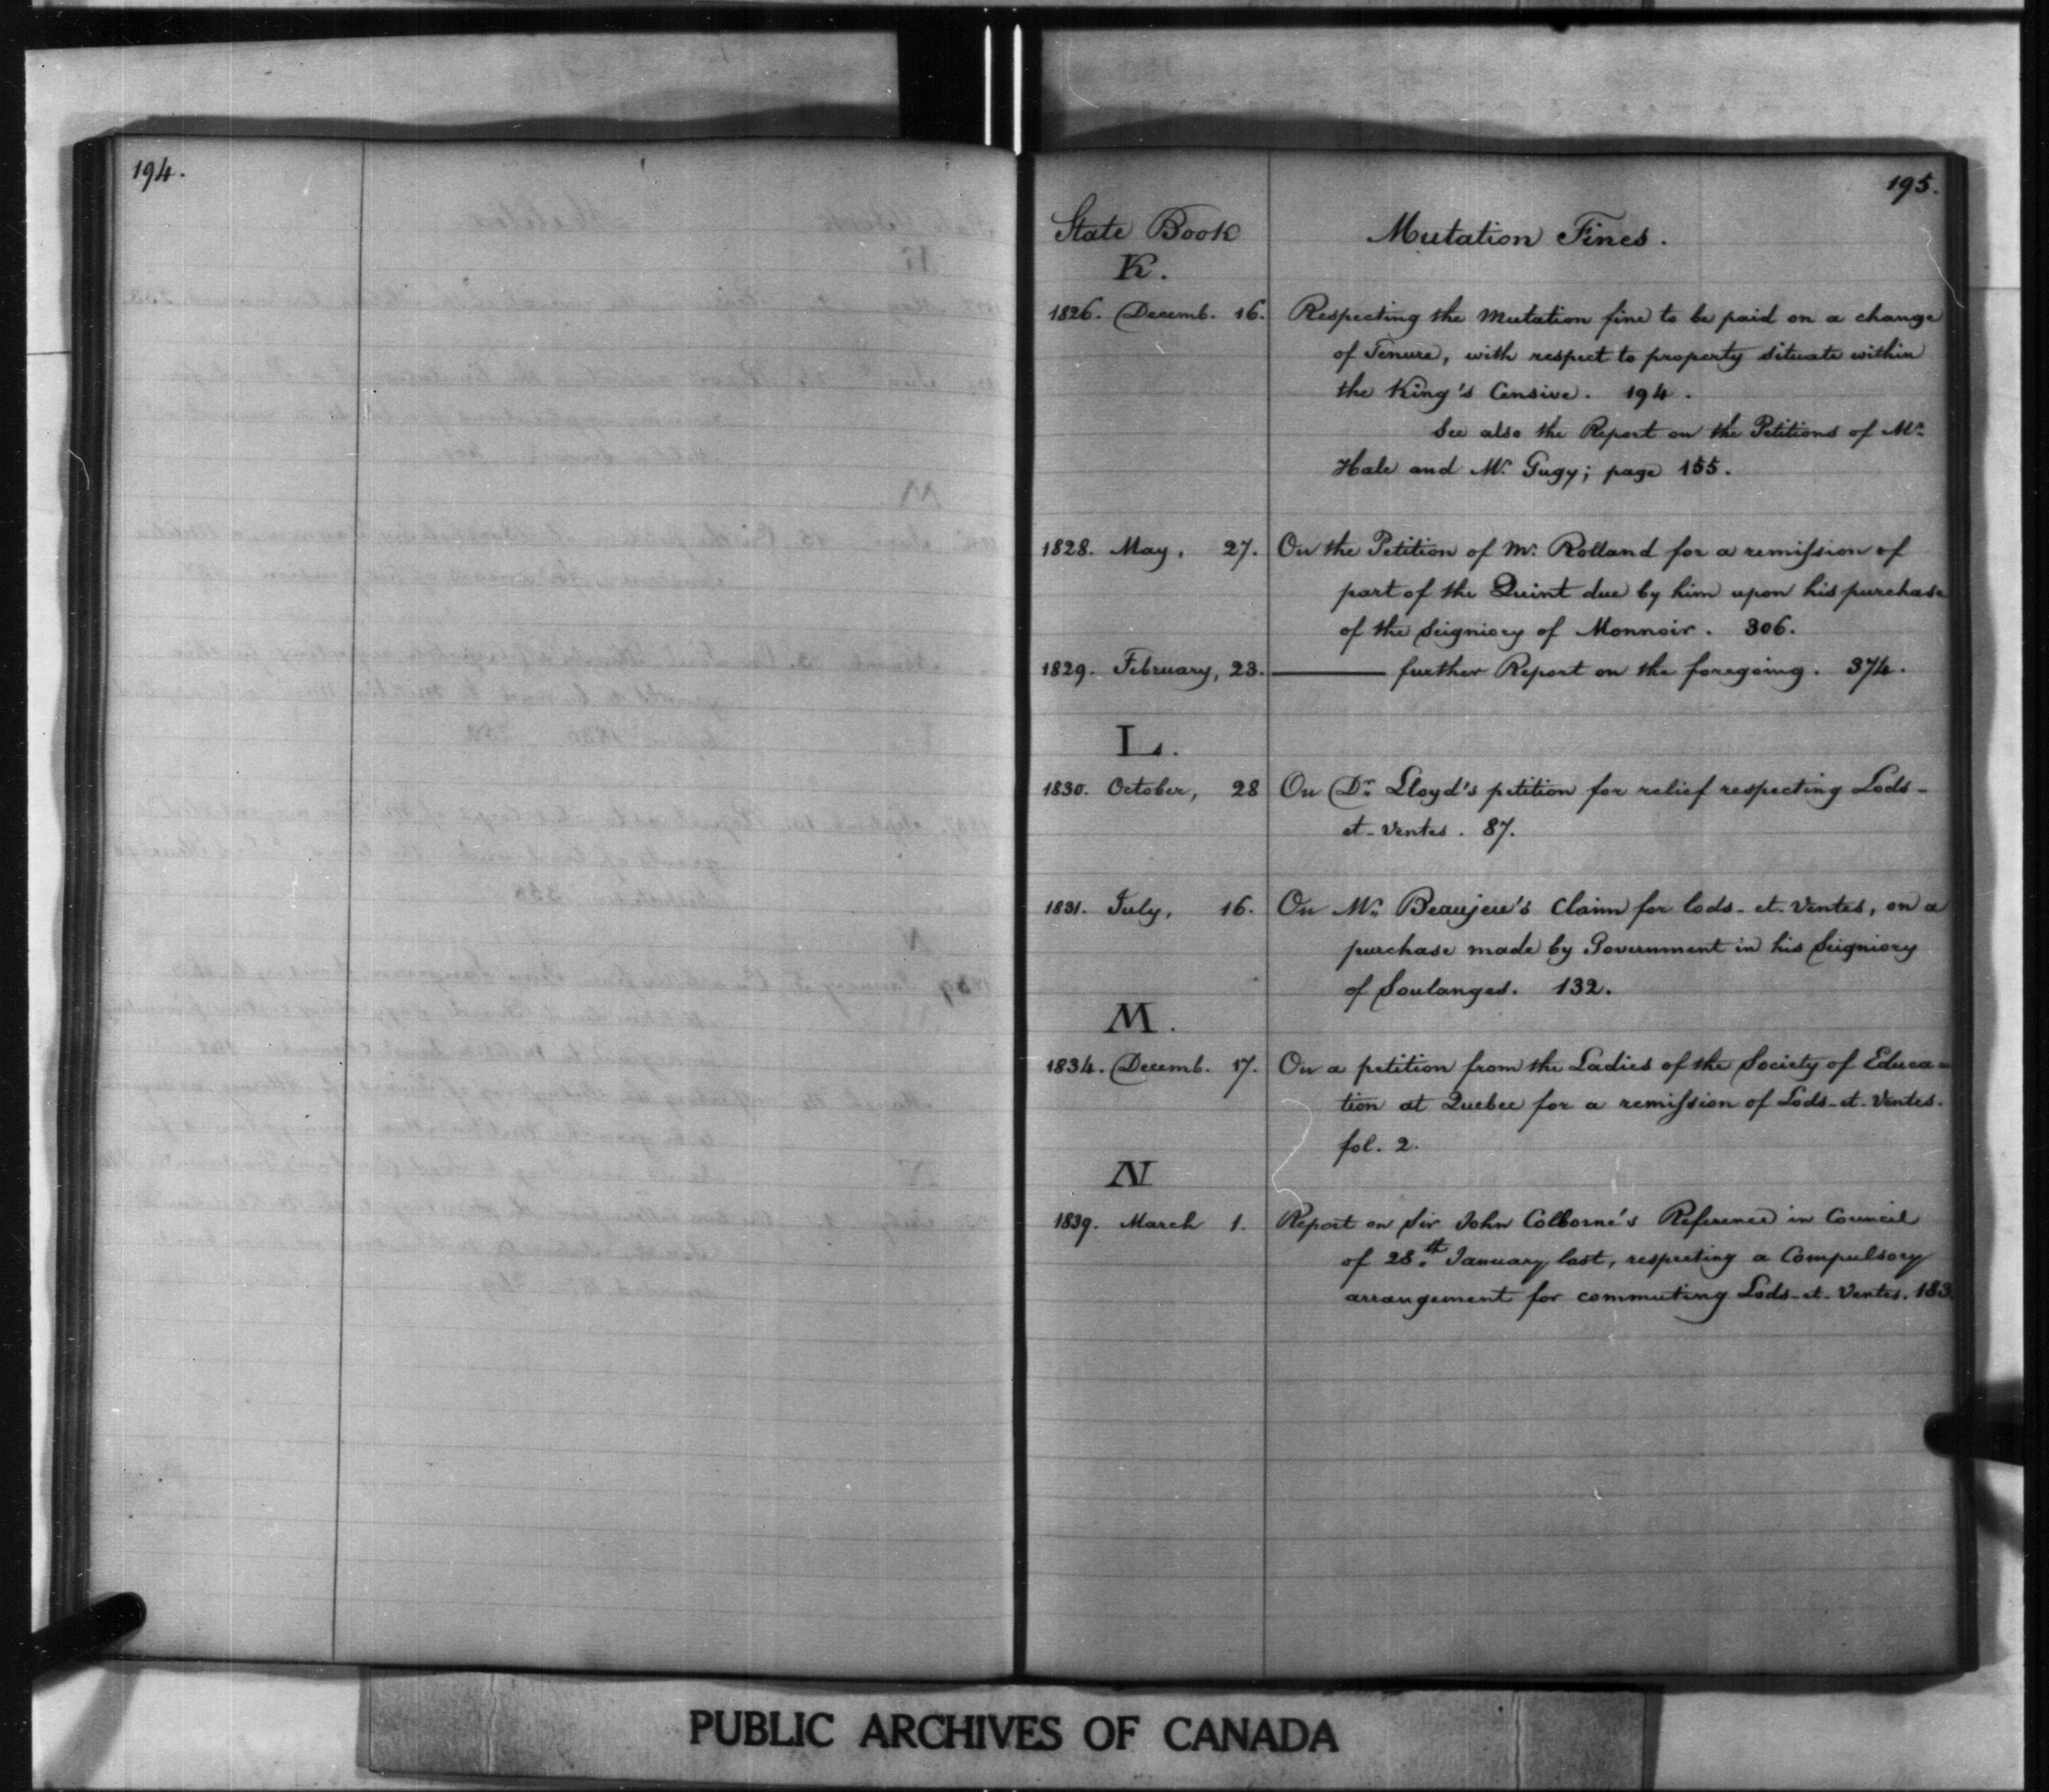 194.
195.
State Book
Mutation Fines.
K.
1826. Decemb. 16. Respecting the Mutation fine to be paid on a change
of Tenure, with respect to property situate within
the King's Censive. 194.
See also the Report on the Petitions of Mr.
Hale and Mr. Gugy; page 155.
1828. May, 27. On the Petition of Mr. Rolland for a remission of
part of the Quint due by him upon his purchase
of the Seigniory of Monnoir. 306.
1829. February, 23. ——— further Report on the foregoing. 374.
L.
1830. October, 28 On Dr. Lloyd's petition for relief respecting Lods-
et-Ventes. 87.
1831. July, 16. On Mr. Beaujeu's Claim for lods-et-Ventes, on a
purchase made by Government in his Seigniory
of Soulanges. 132.
M.
1834. Decemb. 17. On a petition from the Ladies of the Society of Educa=
tion at Quebec for a remission of Lods-et-Ventes.
fol. 2.
N
1839. March 1. Report on Sir John Colborne's Reference in Council
of 28.th January last, respecting a Compulsory
arrangement for commuting Lods-et-Ventes. 183.
PUBLIC ARCHIVES OF CANADA